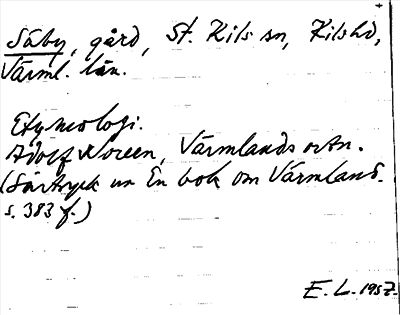 Säby, gård, St. Kils sn, Kilshd,
Värml. län.
Etymologi.
Adolf Noreen, Värmlands ortn.
(Särtryck ur En bok om Värmland.
s. 383 f.)
E. L. 1957.